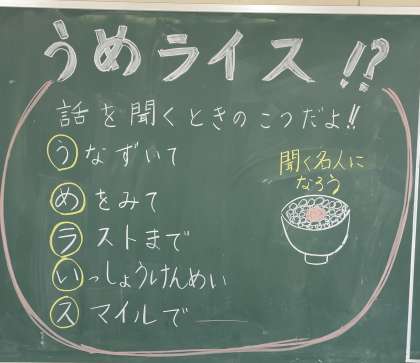 うめライス!?
話を聞くときのこつだよ!!
うなずいて
めをみて
ラストまで
いっしょうけんめい
スマイルで
聞く名人に
なろう